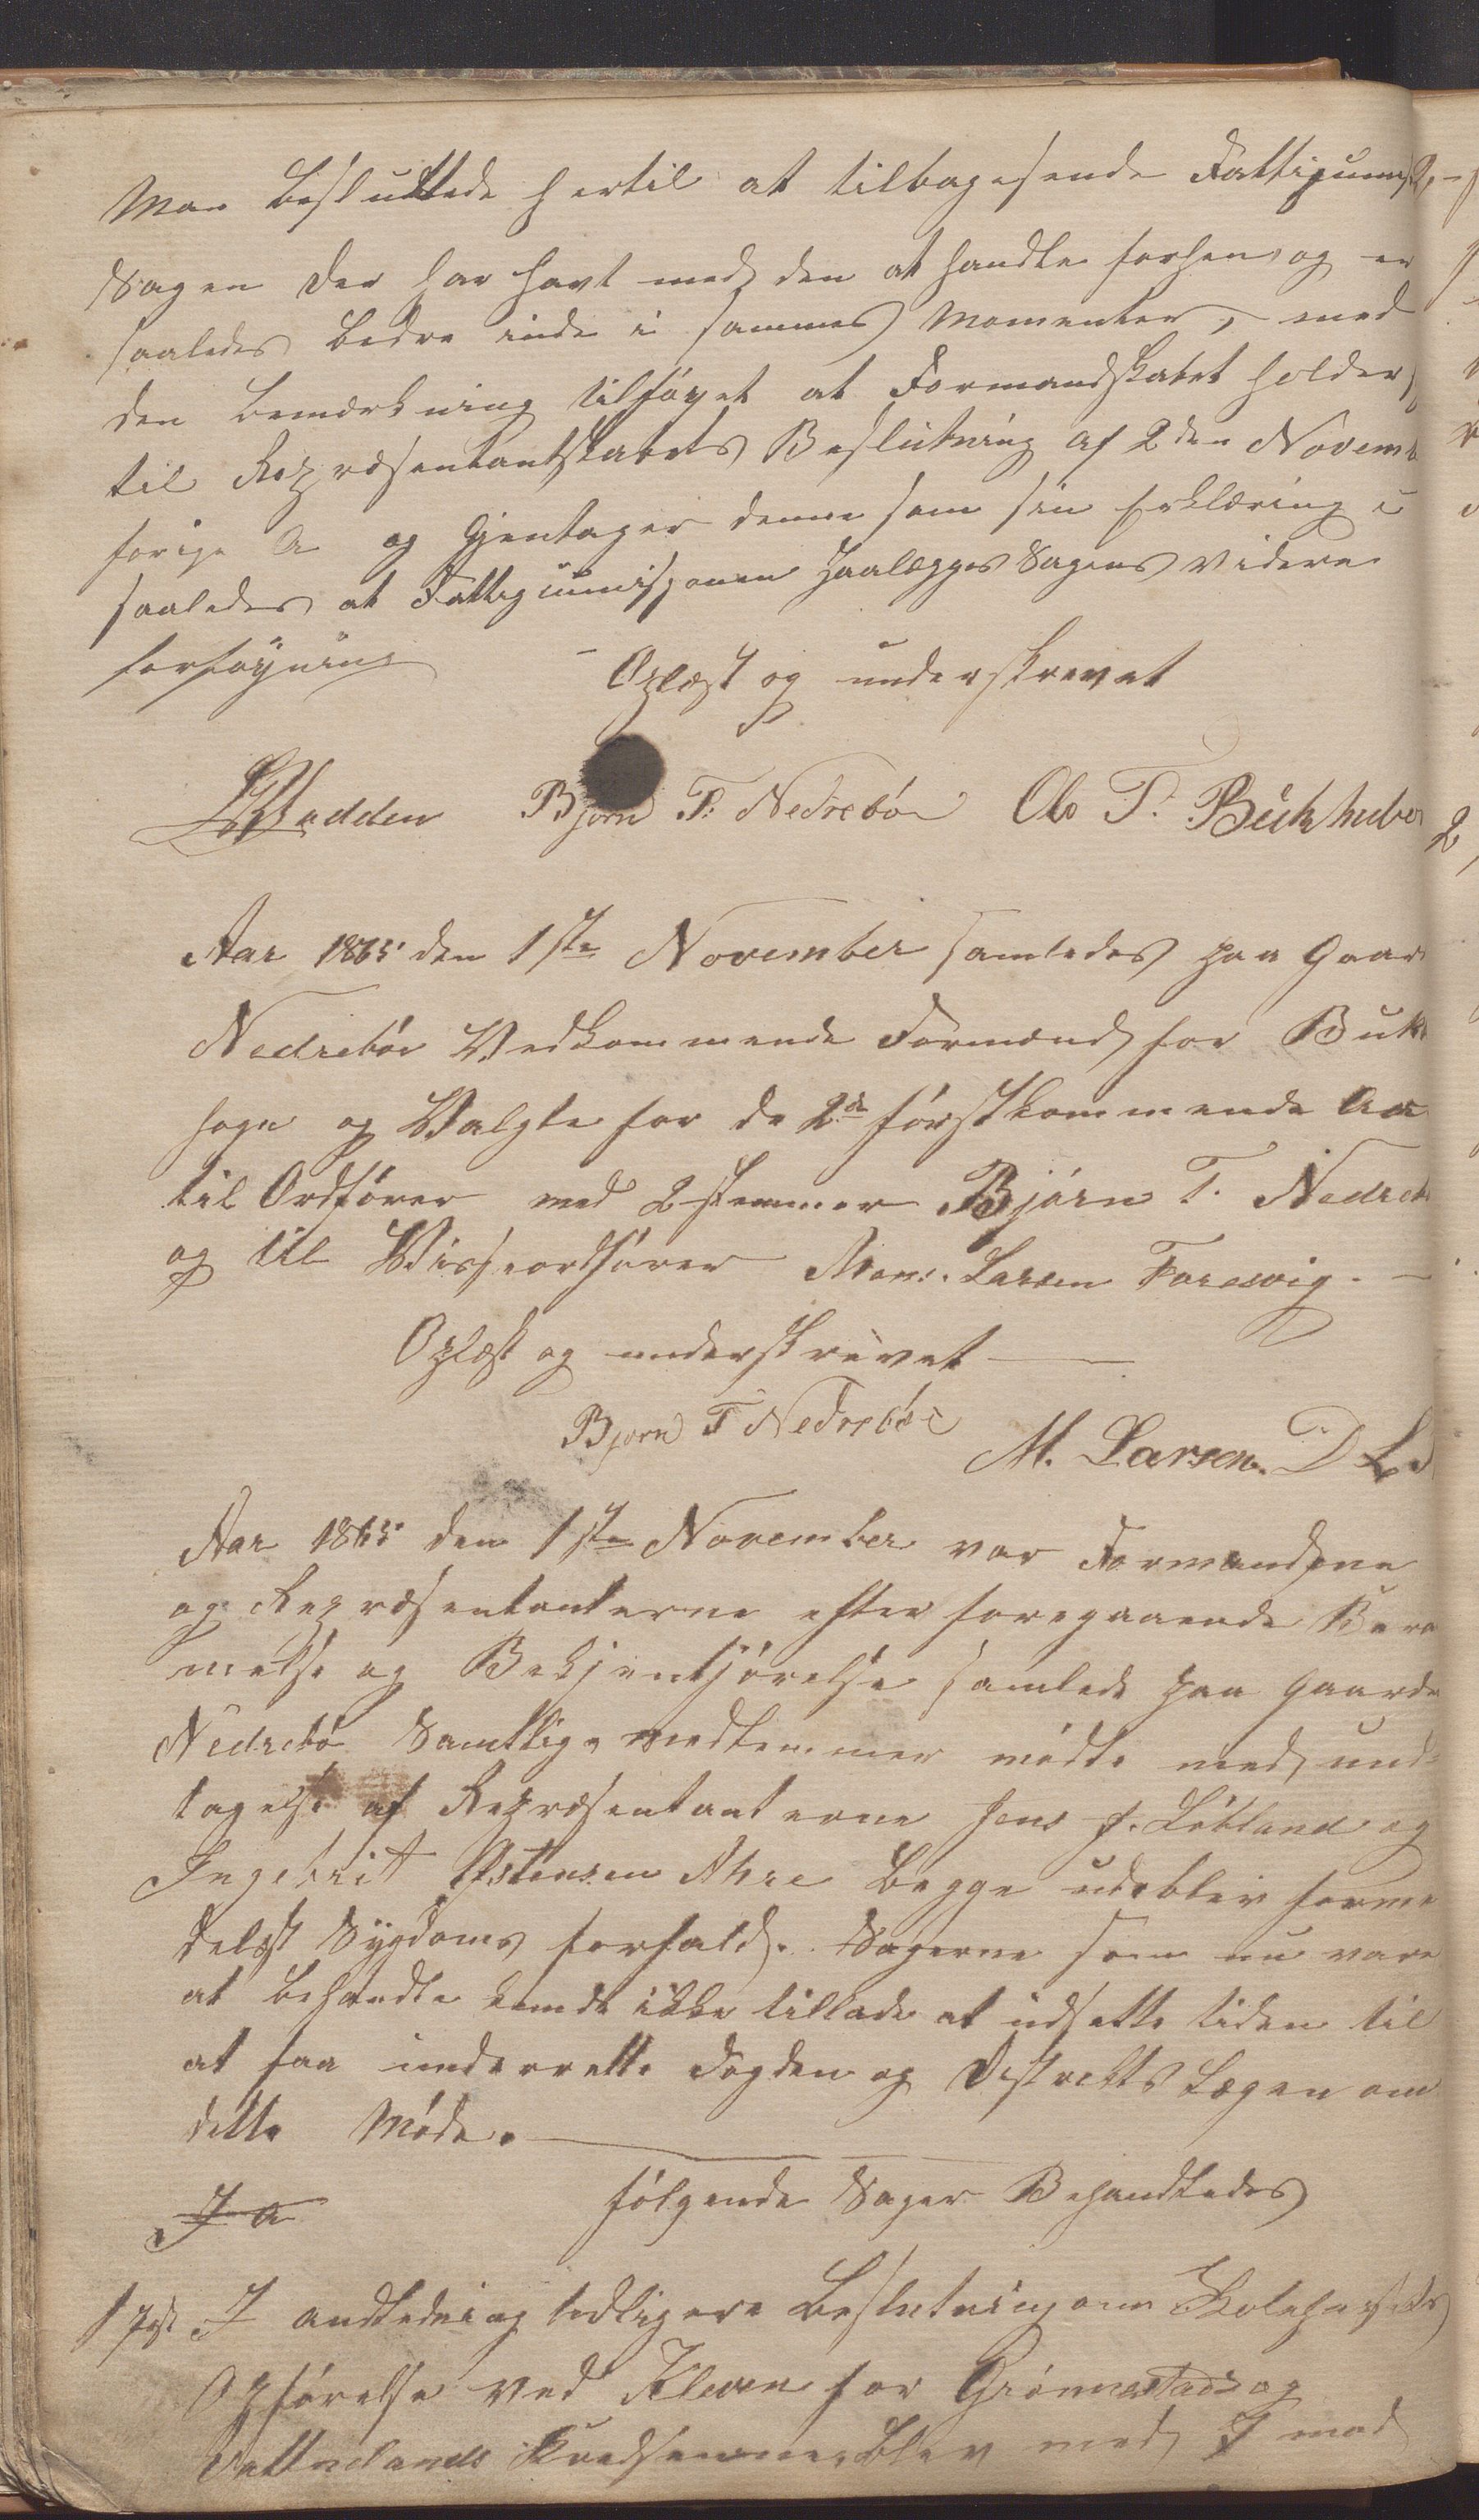 Man besluttede hertil at tilbagesende Fattigcomis
Sagen der har havt med den at handle forhen og er
saaledes bedre inde i sammes Momenter, med
den bemærkning tilføyet at Formandskabet holder
til Repræsentantskabets Beslutning af 2den Novemb
forige A og Gjentager denne som sin Erklæring i
saaledes at Fattigcomissionen paalægges Sagens videre
forføyning
Oplæst og underskrevet
Bjørn T. Nedrebø Ole T. Bukholm
Aar 1865 den 1ste November samledes paa Gaar
Nedrebø Vedkommende Formænd for Buk
sogn og Valgte for de 2de førstkommende Aa
til Ordfører med 2 stemmer Bjørn T. Nedreb
og til Viseordfører Mons. Larsen Foresvig. —
Oplæst og underskrivet —
Bjorn T Nedrebøe
M. Larsen. D L
Aar 1865 den 1ste November var Formændene
og Repræsentanterne efter foregaaende Bera
melse og Bekjentjørelse samlede paa Gaarde
Nedrebø Samtlige medlemmer mødte med und-
tagelse af Repræsentanterne Jens J. Løtland og
Ingebrit Østensen Ahre begge udeblev forme
delst Sygdoms forfald. Sagerne som nu vare
at behandle kunde ikke tillade at udsette tiden til
at faa underrette Fogden og Distrikts Lægen om
dette Møde. —
I a
følgende Sager Behandledes
1 post I andledning tidligere beslutning om Skolehusets
Opførelse ved Kleven for Grönnestads og
Vettelands Kredserne, blev med 7 mod